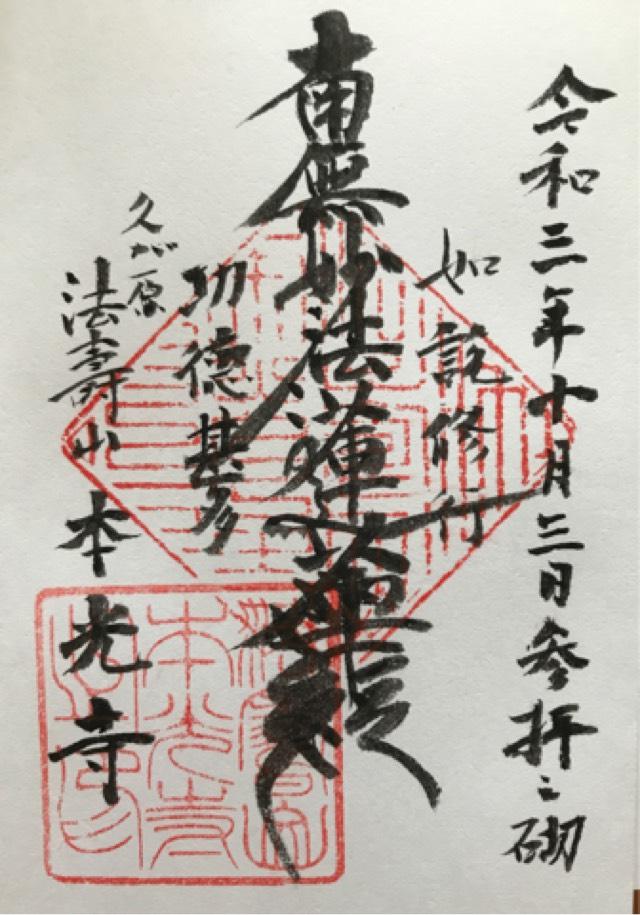 令和三年十月三日参拝之砌
如説修行
南無妙法蓮華経
功徳甚多
久が原
法壽山 本光寺